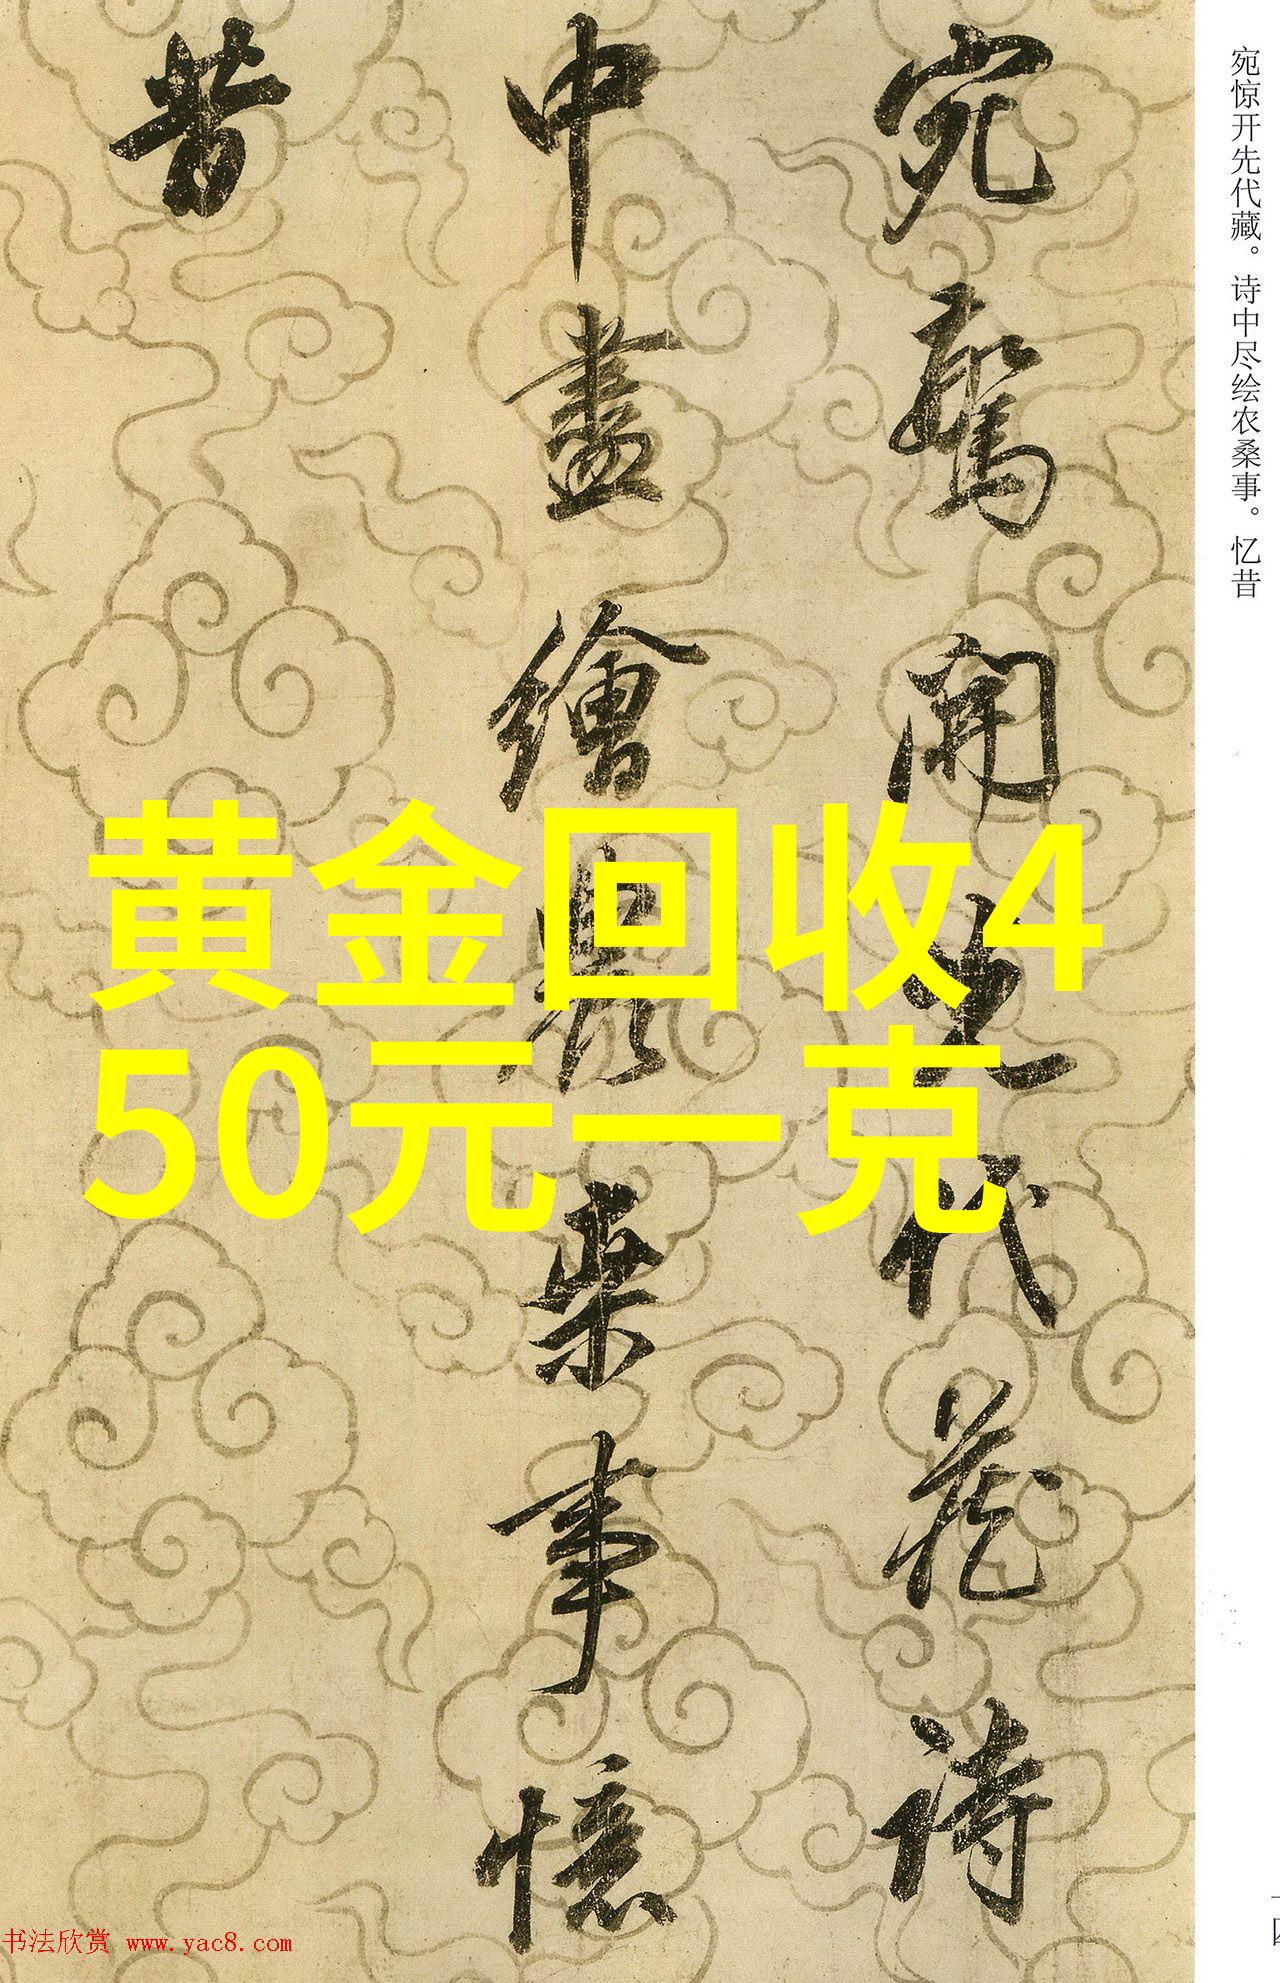 宛惊开先代藏。诗中尽绘农桑事。忆昔
宛驚開先代藏詩
中盡繪農桒事憶
昔
黄金回收4
50元一克
书法欣赏 www.yac8.com